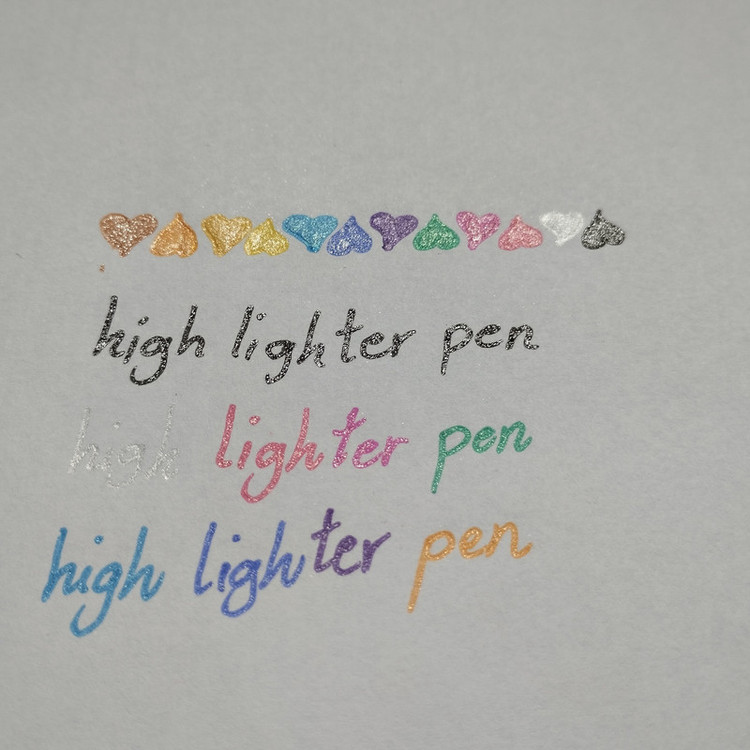 high lighter pen
high lighter pen
high lighter pen